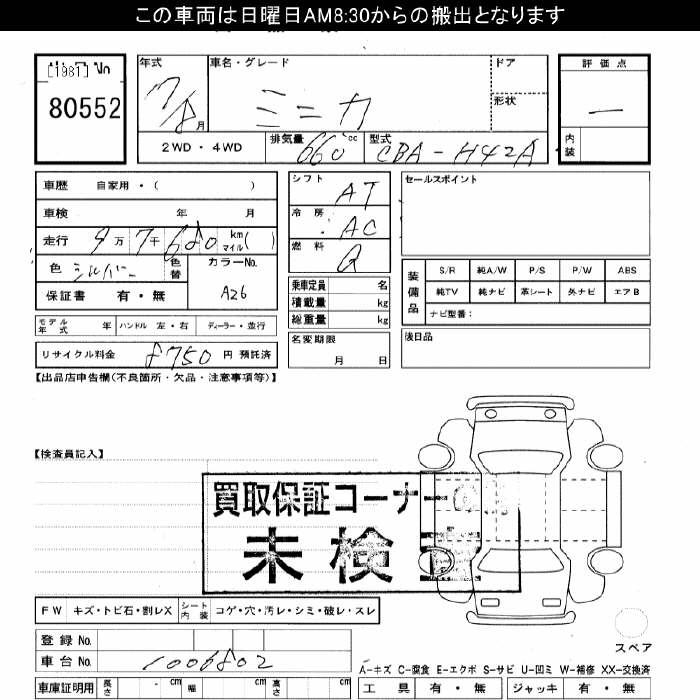 この車両は日曜日AM8:30からの搬出となります
[1981] No
80552
年式 車名・グレード ドア 評価点
月 ミニカ 形状 ー
2WD・4WD 排気量 660 cc 型式 CBA-H42A 内装
車歴 自家用・( )
車検 年 月
走行 9万 7千 680 km マイル ( )
色 シルバー 色替 カラーNo. A26
保証書 有・無
シフト AT
冷房 AC
燃料 G
乗車定員 名
積載量 kg
総重量 kg
名変期限 月 日
セールスポイント
装備品 S/R 純A/W P/S P/W ABS
純TV 純ナビ 革シート 外ナビ エアB
ナビ型番:
後日品
モデル年式 年 ハンドル 左・右 ディーラー・並行
リサイクル料金 8750 円 預託済
【出品店申告欄(不良箇所・欠品・注意事項等)】
【検査員記入】
買取保証コーナー
未検
FW キズ・トビ石・割レX シート内装 コゲ・穴・汚レ・シミ・破レ・スレ
登録No.
車台No. 1006802
スペア
A-キズ C-腐食 E-エクボ S-サビ U-凹ミ W-補修 XX-交換済
車庫証明用 長さ cm 幅 cm 高さ cm 工具 有・無 ジャッキ 有・無